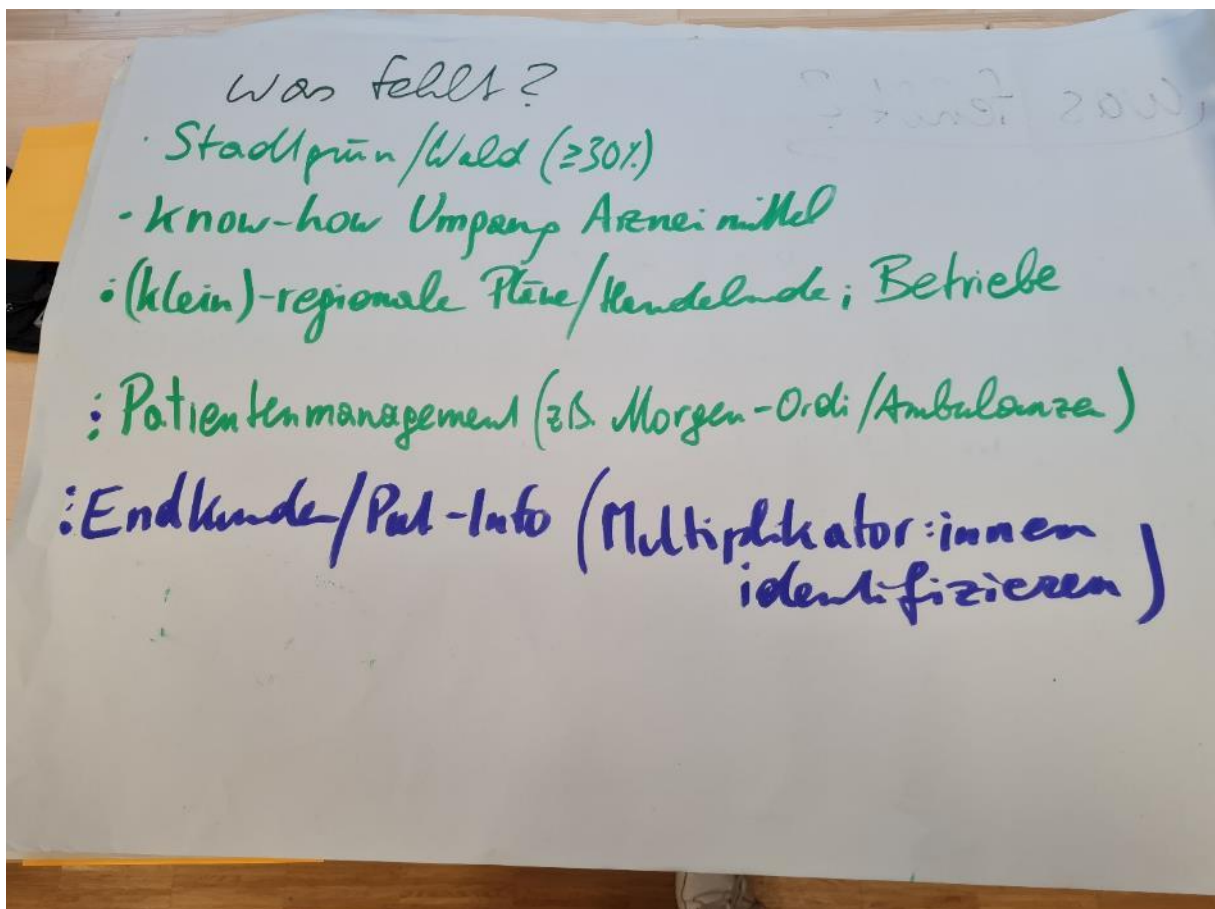 Was fehlt?
· Stadtgrün/Wald (≥30%)
· Know-how Umgang Arzneimittel
: (klein)-regionale Pläne/Handelnde; Betriebe
: Patientenmanagement (zB. Morgen-Ordi/Ambulanzen)
: Endkunde/Pat-Info (Multiplikator:innen
identifizieren)
Was fehlt?